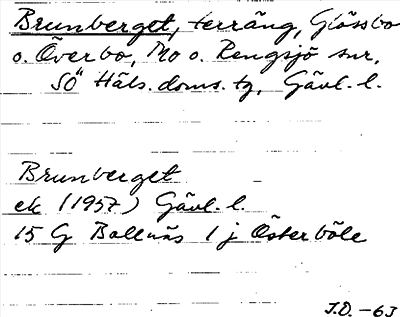 Brunberget, terräng, Glössbo
o. Överbo, Mo o. Rengsjö snr,
SÖ Häls. doms. tg, Gävl. l.
Brunberget
ek (1957) Gävl. l.
15 G Bollnäs 1 j Österböle
J.O. -63